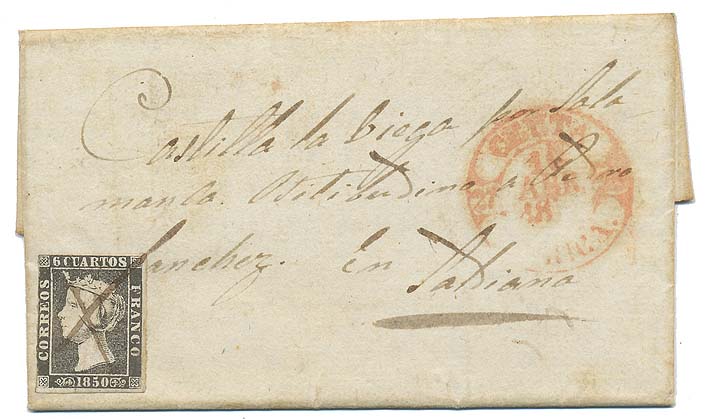 Castilla la biega por Sala
manca. Bitibudino a Pedro
Sanchez. En
CEUTA
18
6 CUARTOS
CORREOS
FRANCO
1850